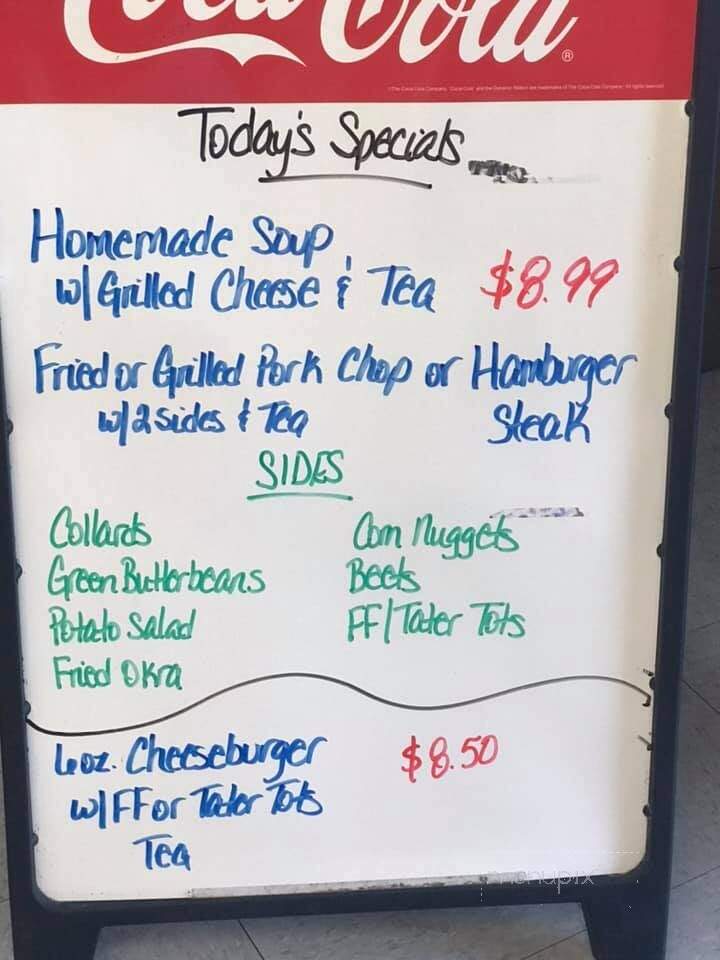 Coca-Cola®
Today's Specials
Homemade Soup
w/ Grilled Cheese & Tea $8.99
Fried or Grilled Pork Chop or Hamburger
w/ 2 sides & Tea Steak
SIDES
Collards Corn Nuggets
Green Butterbeans Beets
Potato Salad FF/Tater Tots
Fried Okra
6oz. Cheeseburger $8.50
w/ FF or Tater Tots
Tea
menupix